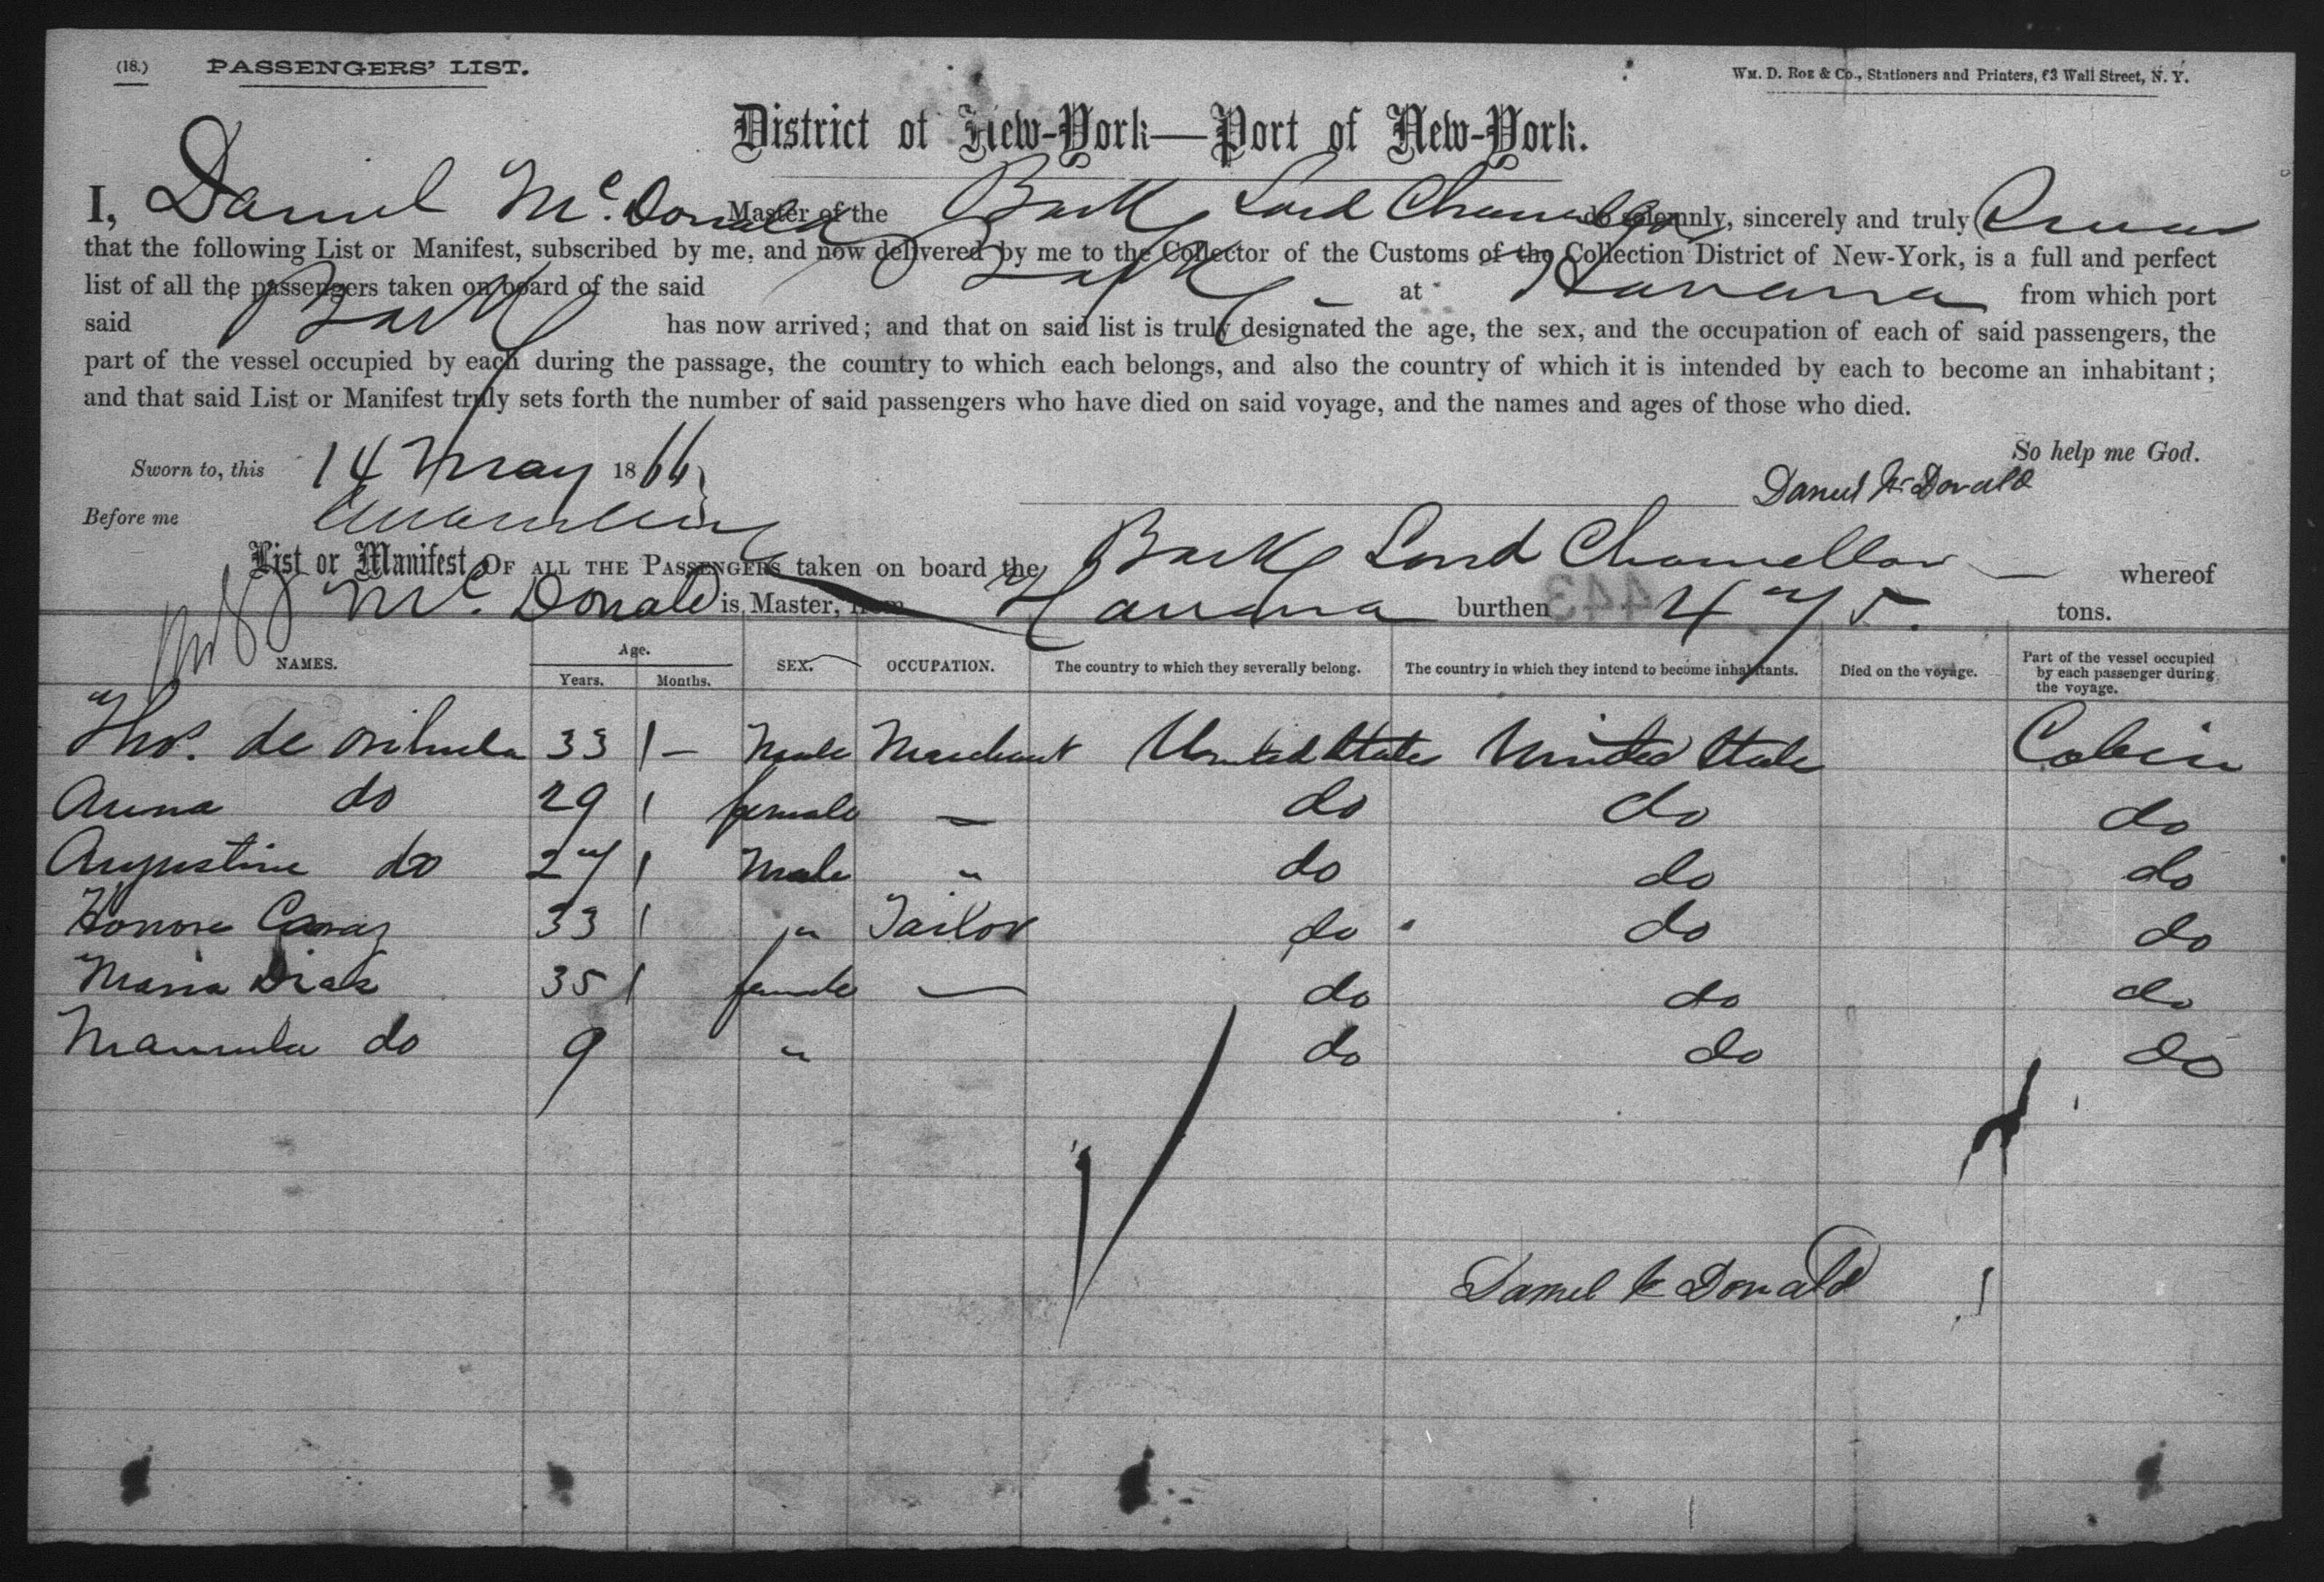 (18.) PASSENGERS' LIST. Wm. D. Roe & Co., Stationers and Printers, 63 Wall Street, N. Y.
District of New-York—Port of New-York.
I, Daniel Mc. Donald Master of the Bark Lord Chancellor do solemnly, sincerely and truly
that the following List or Manifest, subscribed by me, and now delivered by me to the Collector of the Customs of the Collection District of New-York, is a full and perfect
list of all the passengers taken on board of the said Bark at Havana from which port
said Bark has now arrived; and that on said list is truly designated the age, the sex, and the occupation of each of said passengers, the
part of the vessel occupied by each during the passage, the country to which each belongs, and also the country of which it is intended by each to become an inhabitant;
and that said List or Manifest truly sets forth the number of said passengers who have died on said voyage, and the names and ages of those who died.
So help me God.
Sworn to, this 14 May 1866 Daniel Mc Donald
Before me
List or Manifest OF ALL THE PASSENGERS taken on board the Bark Lord Chancellor whereof
Mc. Donald is Master, from Havana burthen 475. tons.
443
NAMES. Age. Years. Months. SEX. OCCUPATION. The country to which they severally belong. The country in which they intend to become inhabitants. Died on the voyage. Part of the vessel occupied by each passenger during the voyage.
Thos. de orihuela 33 - Male Merchant United States United State Cabin
Anna do 29 female - do do do
Augustine do 27 Male " do do do
Honore 33 " Tailor do do do
Maria Dias 35 female - do do do
Manuela do 9 " do do do
Daniel Mc Donald